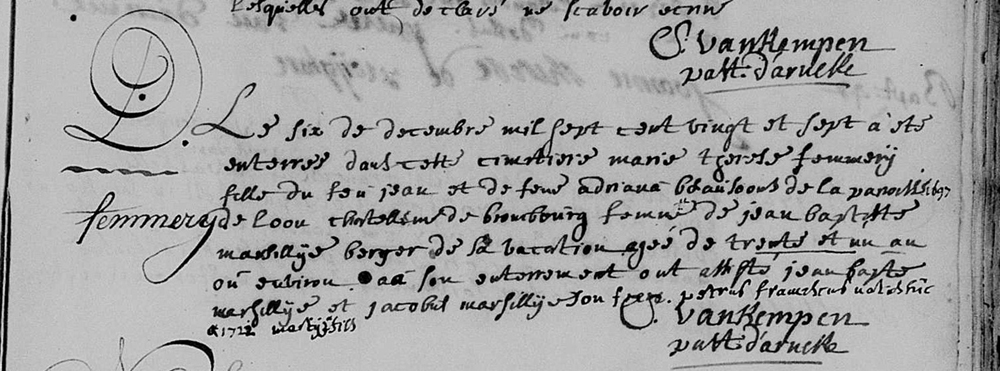 Lesquelles ont declaré ne scavoir ecrire
C. vanKempen
past. d'arneke
D.
Le six de decembre mil sept cent vingt et sept a ete
enterrée dans cette cimitiere marie therese femmery
fille du feu jean et de feue adriana de la paroisse 1697
femmery
de Loon chatellenie de bourbourg femme de jean baptiste
marsillije berger de sa vacation ageé de trente et un an
ou environ a son enterrement ont assisté jean bapte
marsillije et jacobus marsillije son frere. petrus franciscus
a 1722
C. vanKempen
past d'arneke